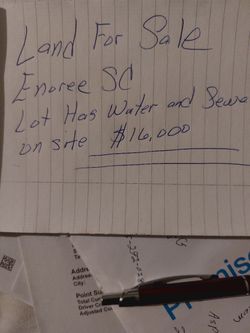 Land For Sale
Enoree SC
Lot Has Water and Sewa
on site $16,000
Addre
Address
City:
Point Su
Total Cur
Driver Cr
Adjusted Co
Promis